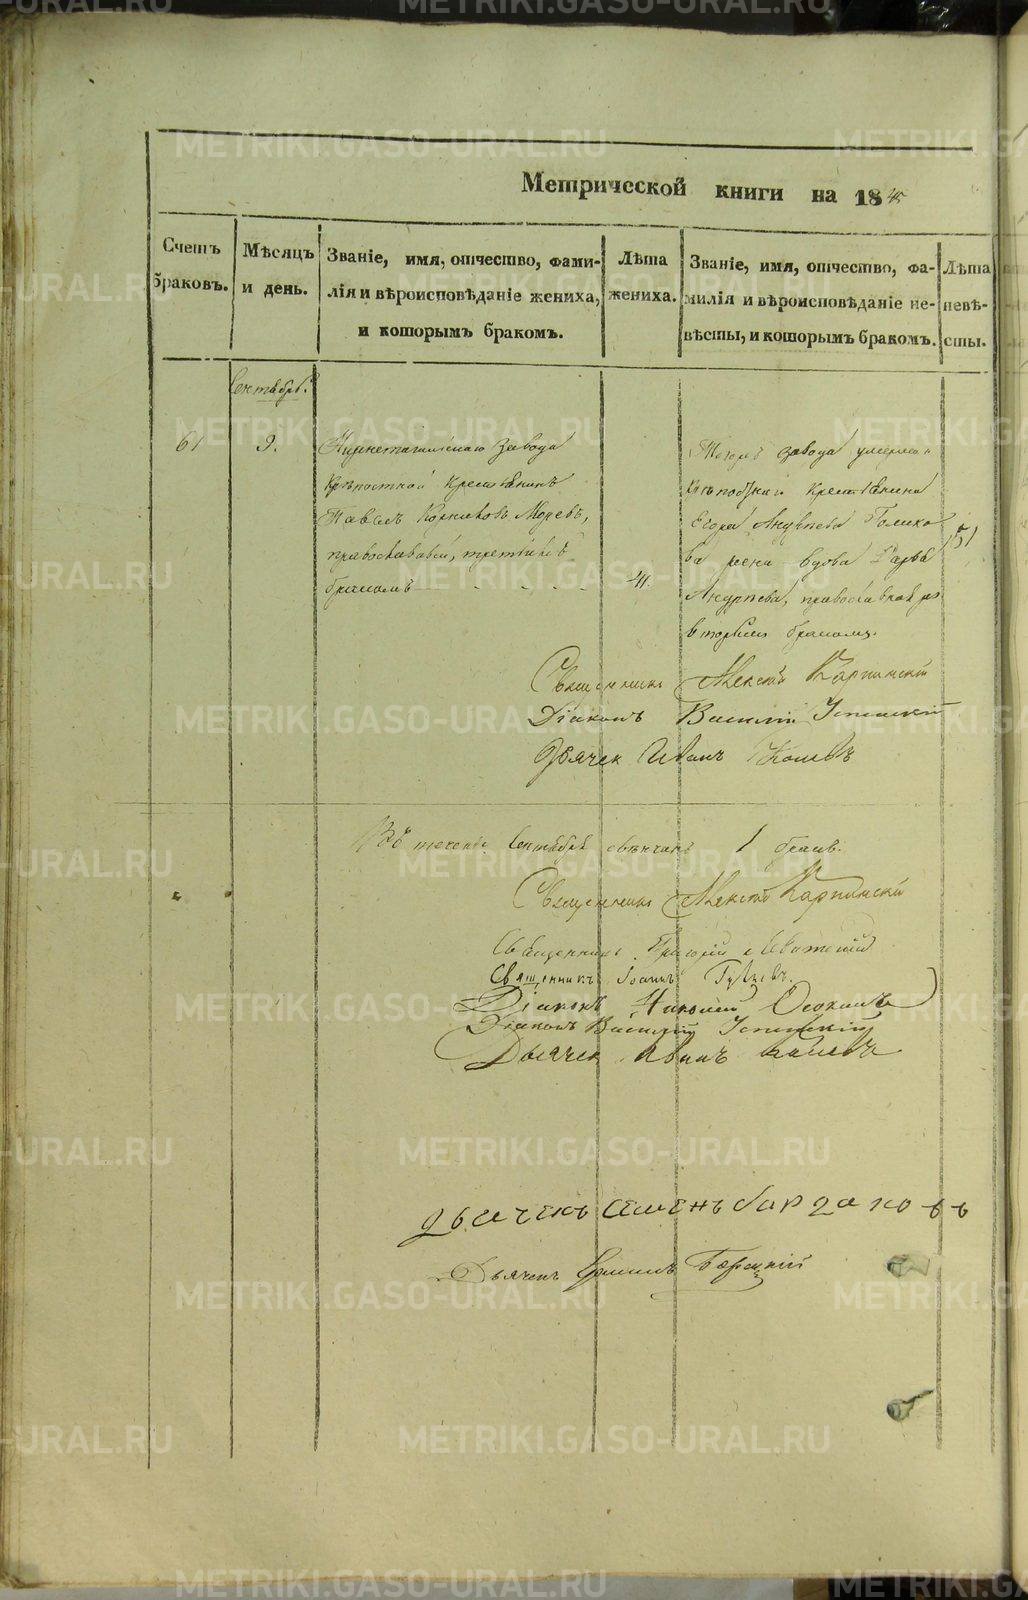 Метрической книги на 1845
Счетъ браковъ.
Мѣсяцъ и день.
Званіе, имя, отчество, фами-
лія и вѣроисповѣданіе жениха,
и которымъ бракомъ.
Лѣта
жениха.
Званіе, имя, отчество, фа-
милія и вѣроисповѣданіе не-
вѣсты, и которымъ бракомъ.
Лѣта
невѣ-
сты.
Сентябрь.
61
9.
Нижнетагильскаго завода
Крѣпостной крестьянинъ
Павелъ Корниловъ
православной, третьимъ
бракомъ
41.
Тогожъ завода умерша
крѣпостнаго крестьянина
Егора Андреева Голико
ва жена вдова Дарья
Андреева, православной
вторымъ бракомъ.
51
Священникъ Алексѣй Карпинскій
Діаконъ Василій
Дьячекъ Иванъ
Въ теченіе Сентября обвѣнчанъ 1 бракъ.
Священникъ Алексѣй Карпинскій
Священникъ Григорій
Священникъ Іоаннъ
Діаконъ Николай Осокинъ
Діаконъ Василій
Дьячекъ Иванъ
Дьячекъ Семенъ
Дьячекъ
METRIKI.GASO-URAL.RU